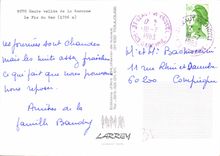 8070 Haute Vallée de la Garonne
Le Pic du Gar (1786 m)
Les journées sont chaudes
mais les nuits assez fraîches
ce qui fait que nous pouvons
nous reposer.
Amitiés de la
famille Baudry
LARREY
M. et Me
11 rue Rhin et Danube
60200 Compiègne